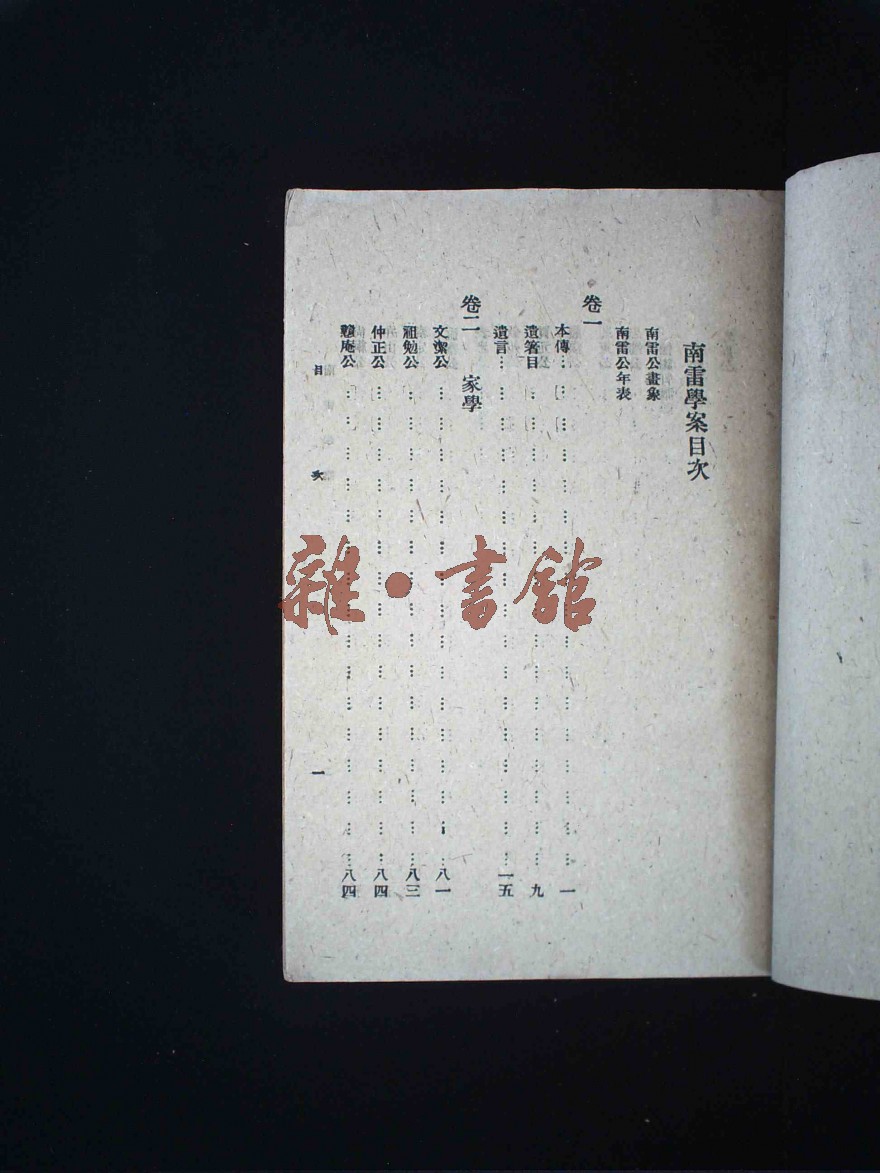 南雷學案目次
南雷公畫象
南雷公年表
卷一
本傳………………………………一
遺箸目………………………………九
遺言………………………………一五
卷二　家學
文潔公………………………………八一
祖勉公………………………………八三
仲正公………………………………八四
戇庵公………………………………八四
目次
一
雜·書館